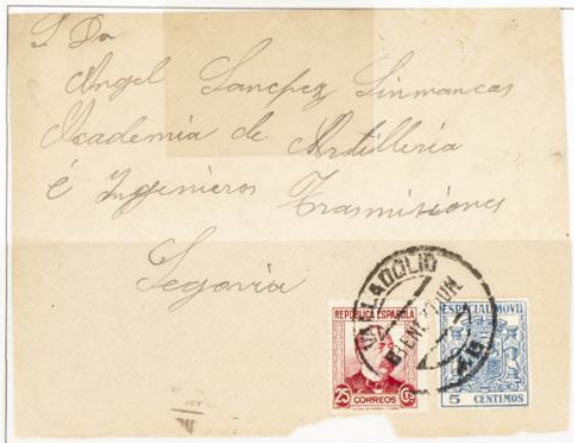 S. Dn
Angel Sanchez Sinmancas
Academia de Artilleria
é Ingenieros Trasmisiones
Segovia
VALLADOLID
REPÚBLICA ESPAÑOLA
25 Cts
CORREOS
ESPECIAL MOVIL
5 CENTIMOS